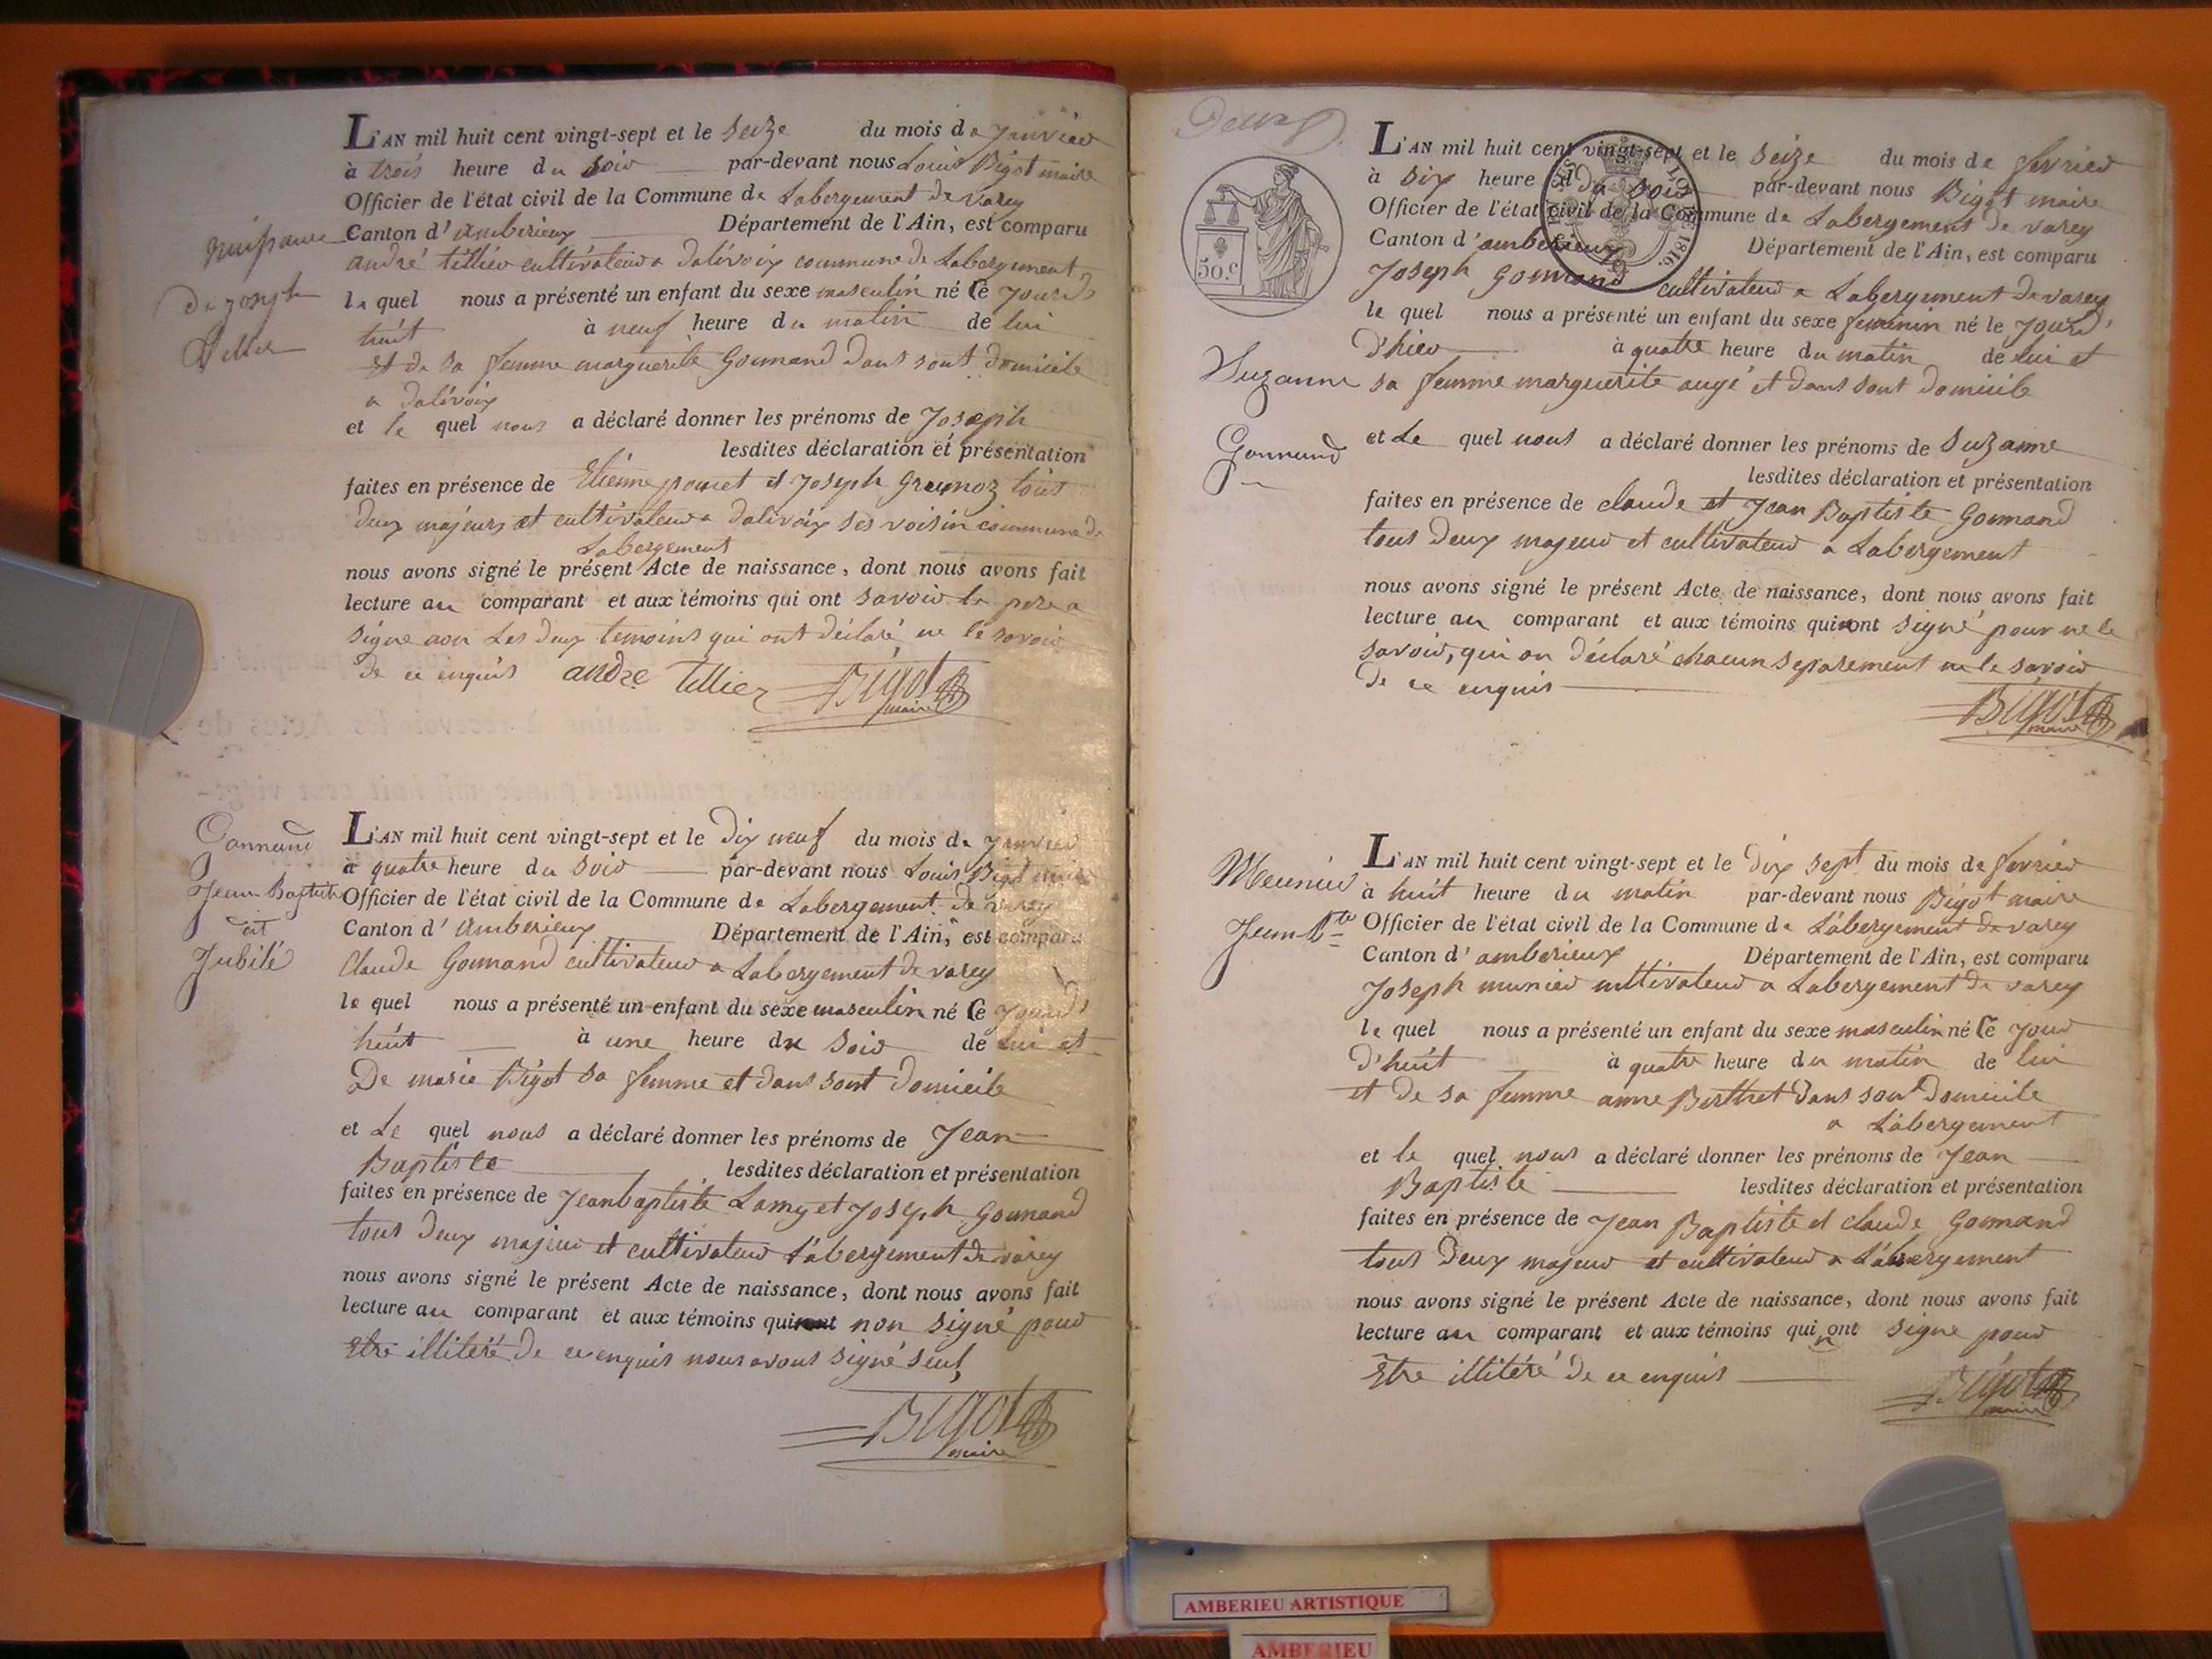 naissance
de joseph
tillier
L'AN mil huit cent vingt-sept et le seize du mois de janvier
à trois heure du soir par-devant nous Louis Bigot maire
Officier de l'état civil de la Commune de Labergement de varey
Canton d'ambérieux Département de l'Ain, est comparu
andré tillier cultivateur a dalivoix commune de Labergement
le quel nous a présenté un enfant du sexe masculin né ce jourd
huit à neuf heure du matin de lui
et de sa femme marguerite Gonnand dans sont domicile
a dalivoix
et le quel nous a déclaré donner les prénoms de Joseph
lesdites déclaration et présentation
faites en présence de Etienne poncet et Joseph tous
deux majeurs et cultivateur a dalivoix ses voisin commune de
Labergement
nous avons signé le présent Acte de naissance, dont nous avons fait
lecture au comparant et aux témoins qui ont savoir le pere a
signe non Les deux temoins qui ont déclaré ne le savoir
de ce enquis andre tillier Bigot
maire
Gonnand
Jean Baptiste
dit
Jubilé
L'AN mil huit cent vingt-sept et le dix neuf du mois de janvier
à quatre heure du soir par-devant nous Louis Bigot maire
Officier de l'état civil de la Commune de Labergement de varey
Canton d'ambérieux Département de l'Ain, est comparu
Claude Gonnand cultivateur a Labergement de varey
le quel nous a présenté un enfant du sexe masculin né ce jourd'
huit à une heure du soir de lui et
De marie Bigot sa femme et dans sont domicile
et Le quel nous a déclaré donner les prénoms de Jean
Baptiste lesdites déclaration et présentation
faites en présence de Jeanbaptiste Lamy et Joseph Gonnand
tous deux majeur et cultivateur Labergement de varey
nous avons signé le présent Acte de naissance, dont nous avons fait
lecture au comparant et aux témoins qui non signé pour
Etre illitéré de ce enquis nous avons signé seul,
Bigot
maire
Deux
50.c
1816.
Suzanne
Gonnand
L'AN mil huit cent vingt-sept et le seize du mois de fevrier
à six heure du soir par-devant nous Bigot maire
Officier de l'état civil de la Commune de Labergement de varey
Canton d'ambérieux Département de l'Ain, est comparu
Joseph Gonnand cultivateur a Labergement de varey
le quel nous a présenté un enfant du sexe feminin né le jourd'
d'hier à quatre heure du matin de lui et
sa femme marguerite augé et dans sont domicile
et Le quel nous a déclaré donner les prénoms de Suzanne
lesdites déclaration et présentation
faites en présence de claude et Jean Baptiste Gonnand
tous deux majeur et cultivateur a Labergement
nous avons signé le présent Acte de naissance, dont nous avons fait
lecture au comparant et aux témoins qui nont signé pour ne le
savoir, qui on déclaré chacun séparement ne le savoir
De ce enquis
Bigot
maire
Meunier
Jean Bte
L'AN mil huit cent vingt-sept et le dix sept du mois de fevrier
à huit heure du matin par-devant nous Bigot maire
Officier de l'état civil de la Commune de Labergement de varey
Canton d'ambérieux Département de l'Ain, est comparu
Joseph munier cultivateur a Labergement de varey
le quel nous a présenté un enfant du sexe masculin né ce jour
d'huit à quatre heure du matin de lui
et de sa femme anne Berthet dans son domicile
a Labergement
et le quel nous a déclaré donner les prénoms de Jean
Baptiste lesdites déclaration et présentation
faites en présence de Jean Baptiste et claude Gonnand
tous deux majeur et cultivateur a Labergement
nous avons signé le présent Acte de naissance, dont nous avons fait
lecture au comparant et aux témoins qui nont signe pour
Etre illitéré de ce enquis
Bigot
maire
AMBERIEU ARTISTIQUE
AMBERIEU